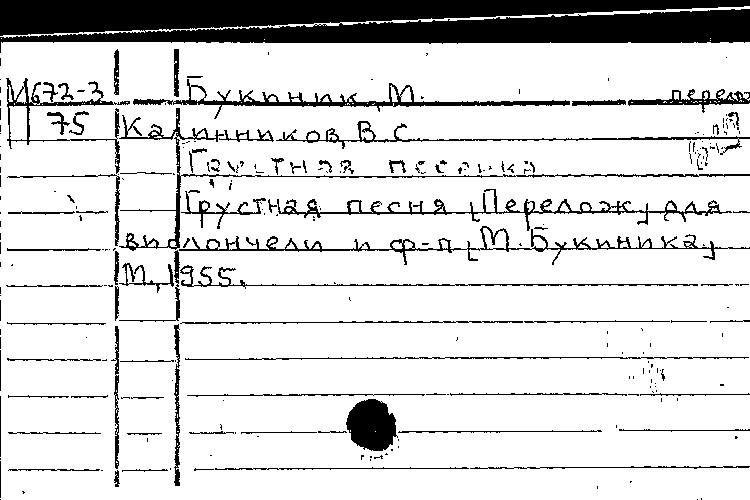 М672-3 Букиник, М. перелож
75 Калинников, В. С.
Грустная песенка
Грустная песня [Перелож.] для
виолончели и ф-п [М. Букиника]
М., 1955.